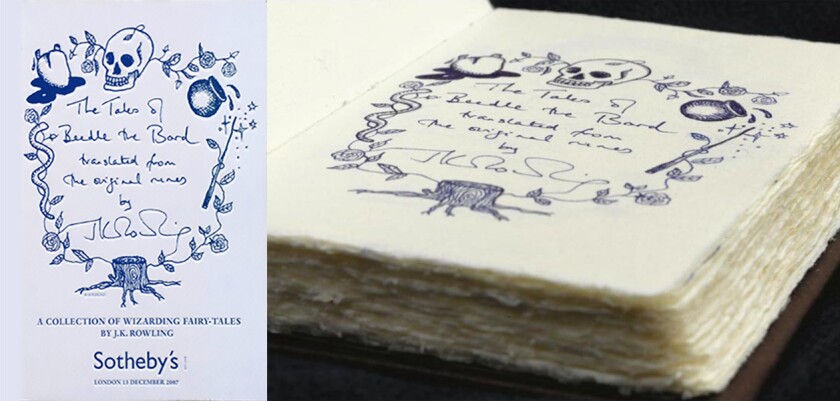 The Tales of
Beedle the Bard
translated from
the original runes
by
JK Rowling
A COLLECTION OF WIZARDING FAIRY-TALES
BY J.K. ROWLING
Sotheby's
LONDON 13 DECEMBER 2007
The Tales of
Beedle the Bard
translated from
the original runes
by
JK Rowling